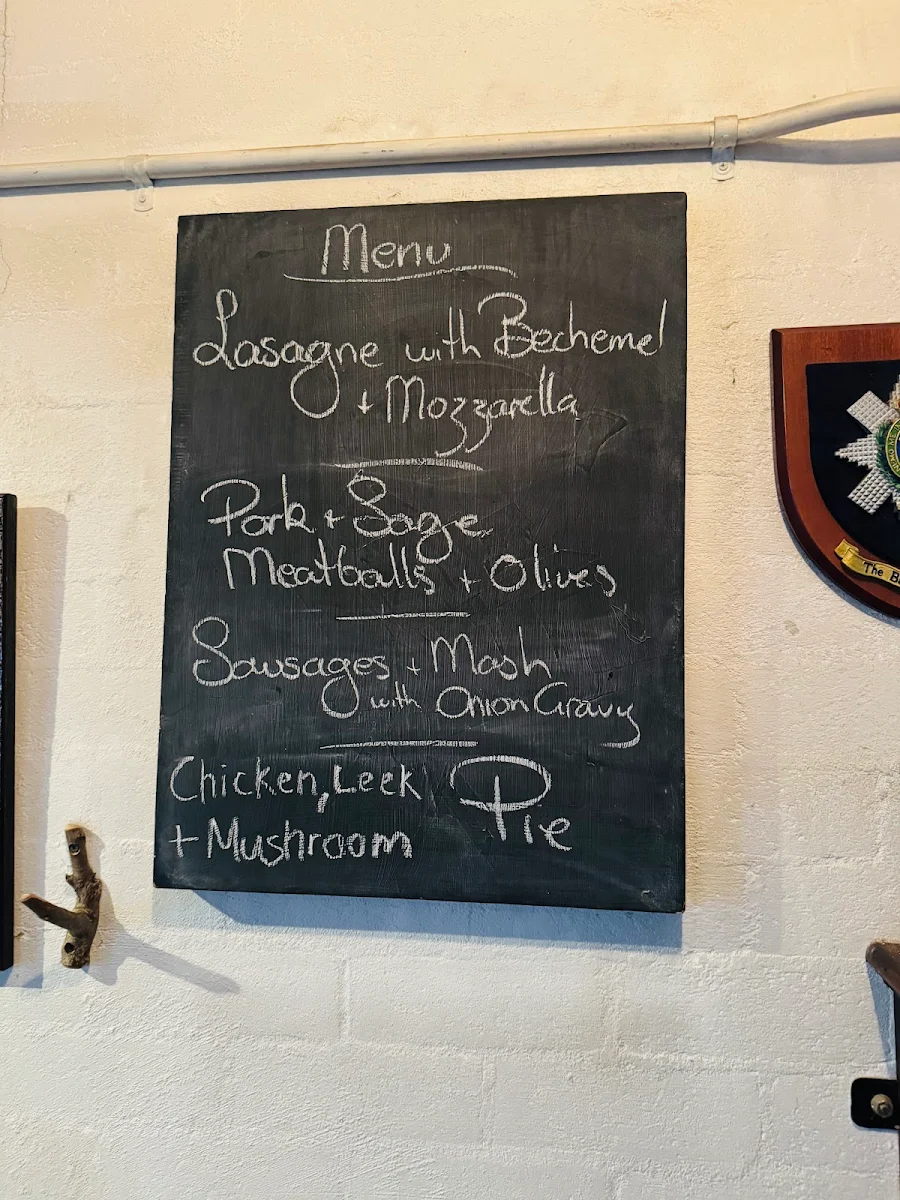 Menu
Lasagne with Bechemel
+ Mozzarella
Pork + Sage
Meatballs + Olives
Sausages + Mash
with Onion Gravy
Chicken, Leek
+ Mushroom
Pie
The B